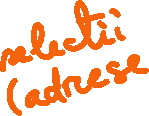 selectii
(adrese